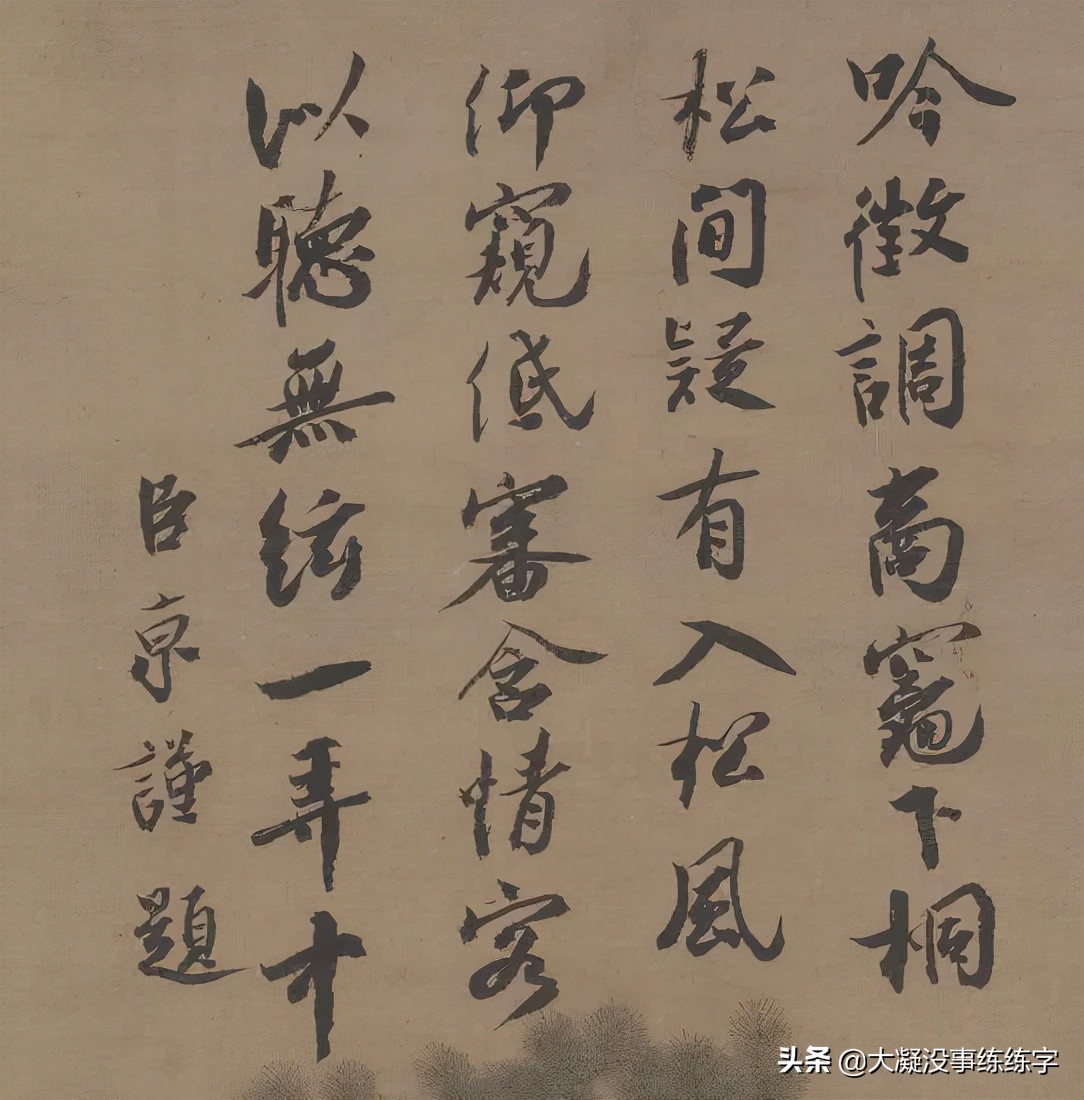 吟徵調商竈下桐
松間疑有入松風
仰窺低審含情客
以聽無絃一弄中
臣京謹題
头条 @大凝没事练练字